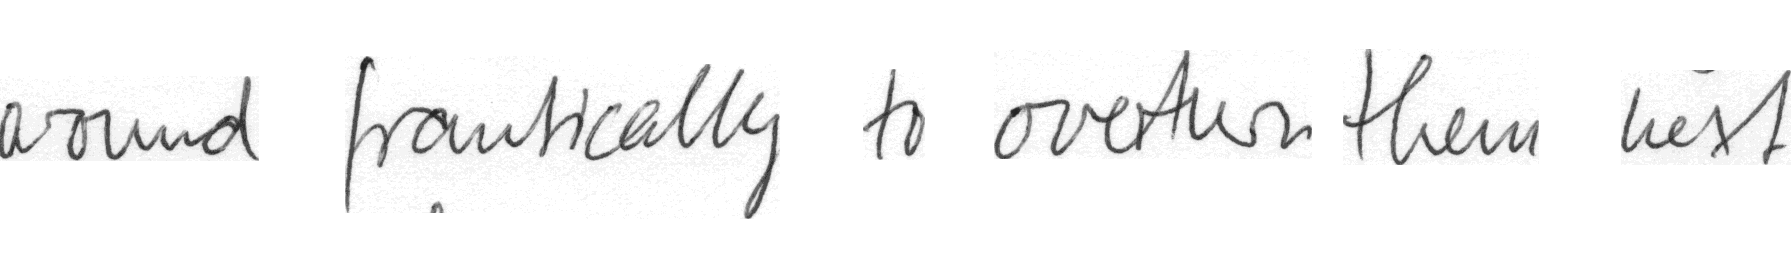 around frantically to overturn them next